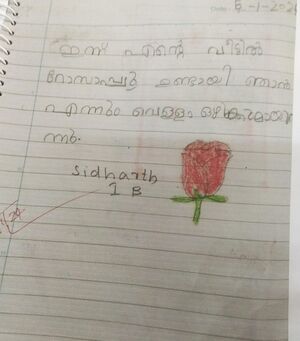 Date: 6-1-202
ഇന്ന് എന്റെ വീട്ടിൽ
റോസാപ്പൂ ഉണ്ടായി ഞാൻ
എന്നും വെള്ളം ഒഴിക്കുമായിരു
ന്നു.
Sidharth
1 B